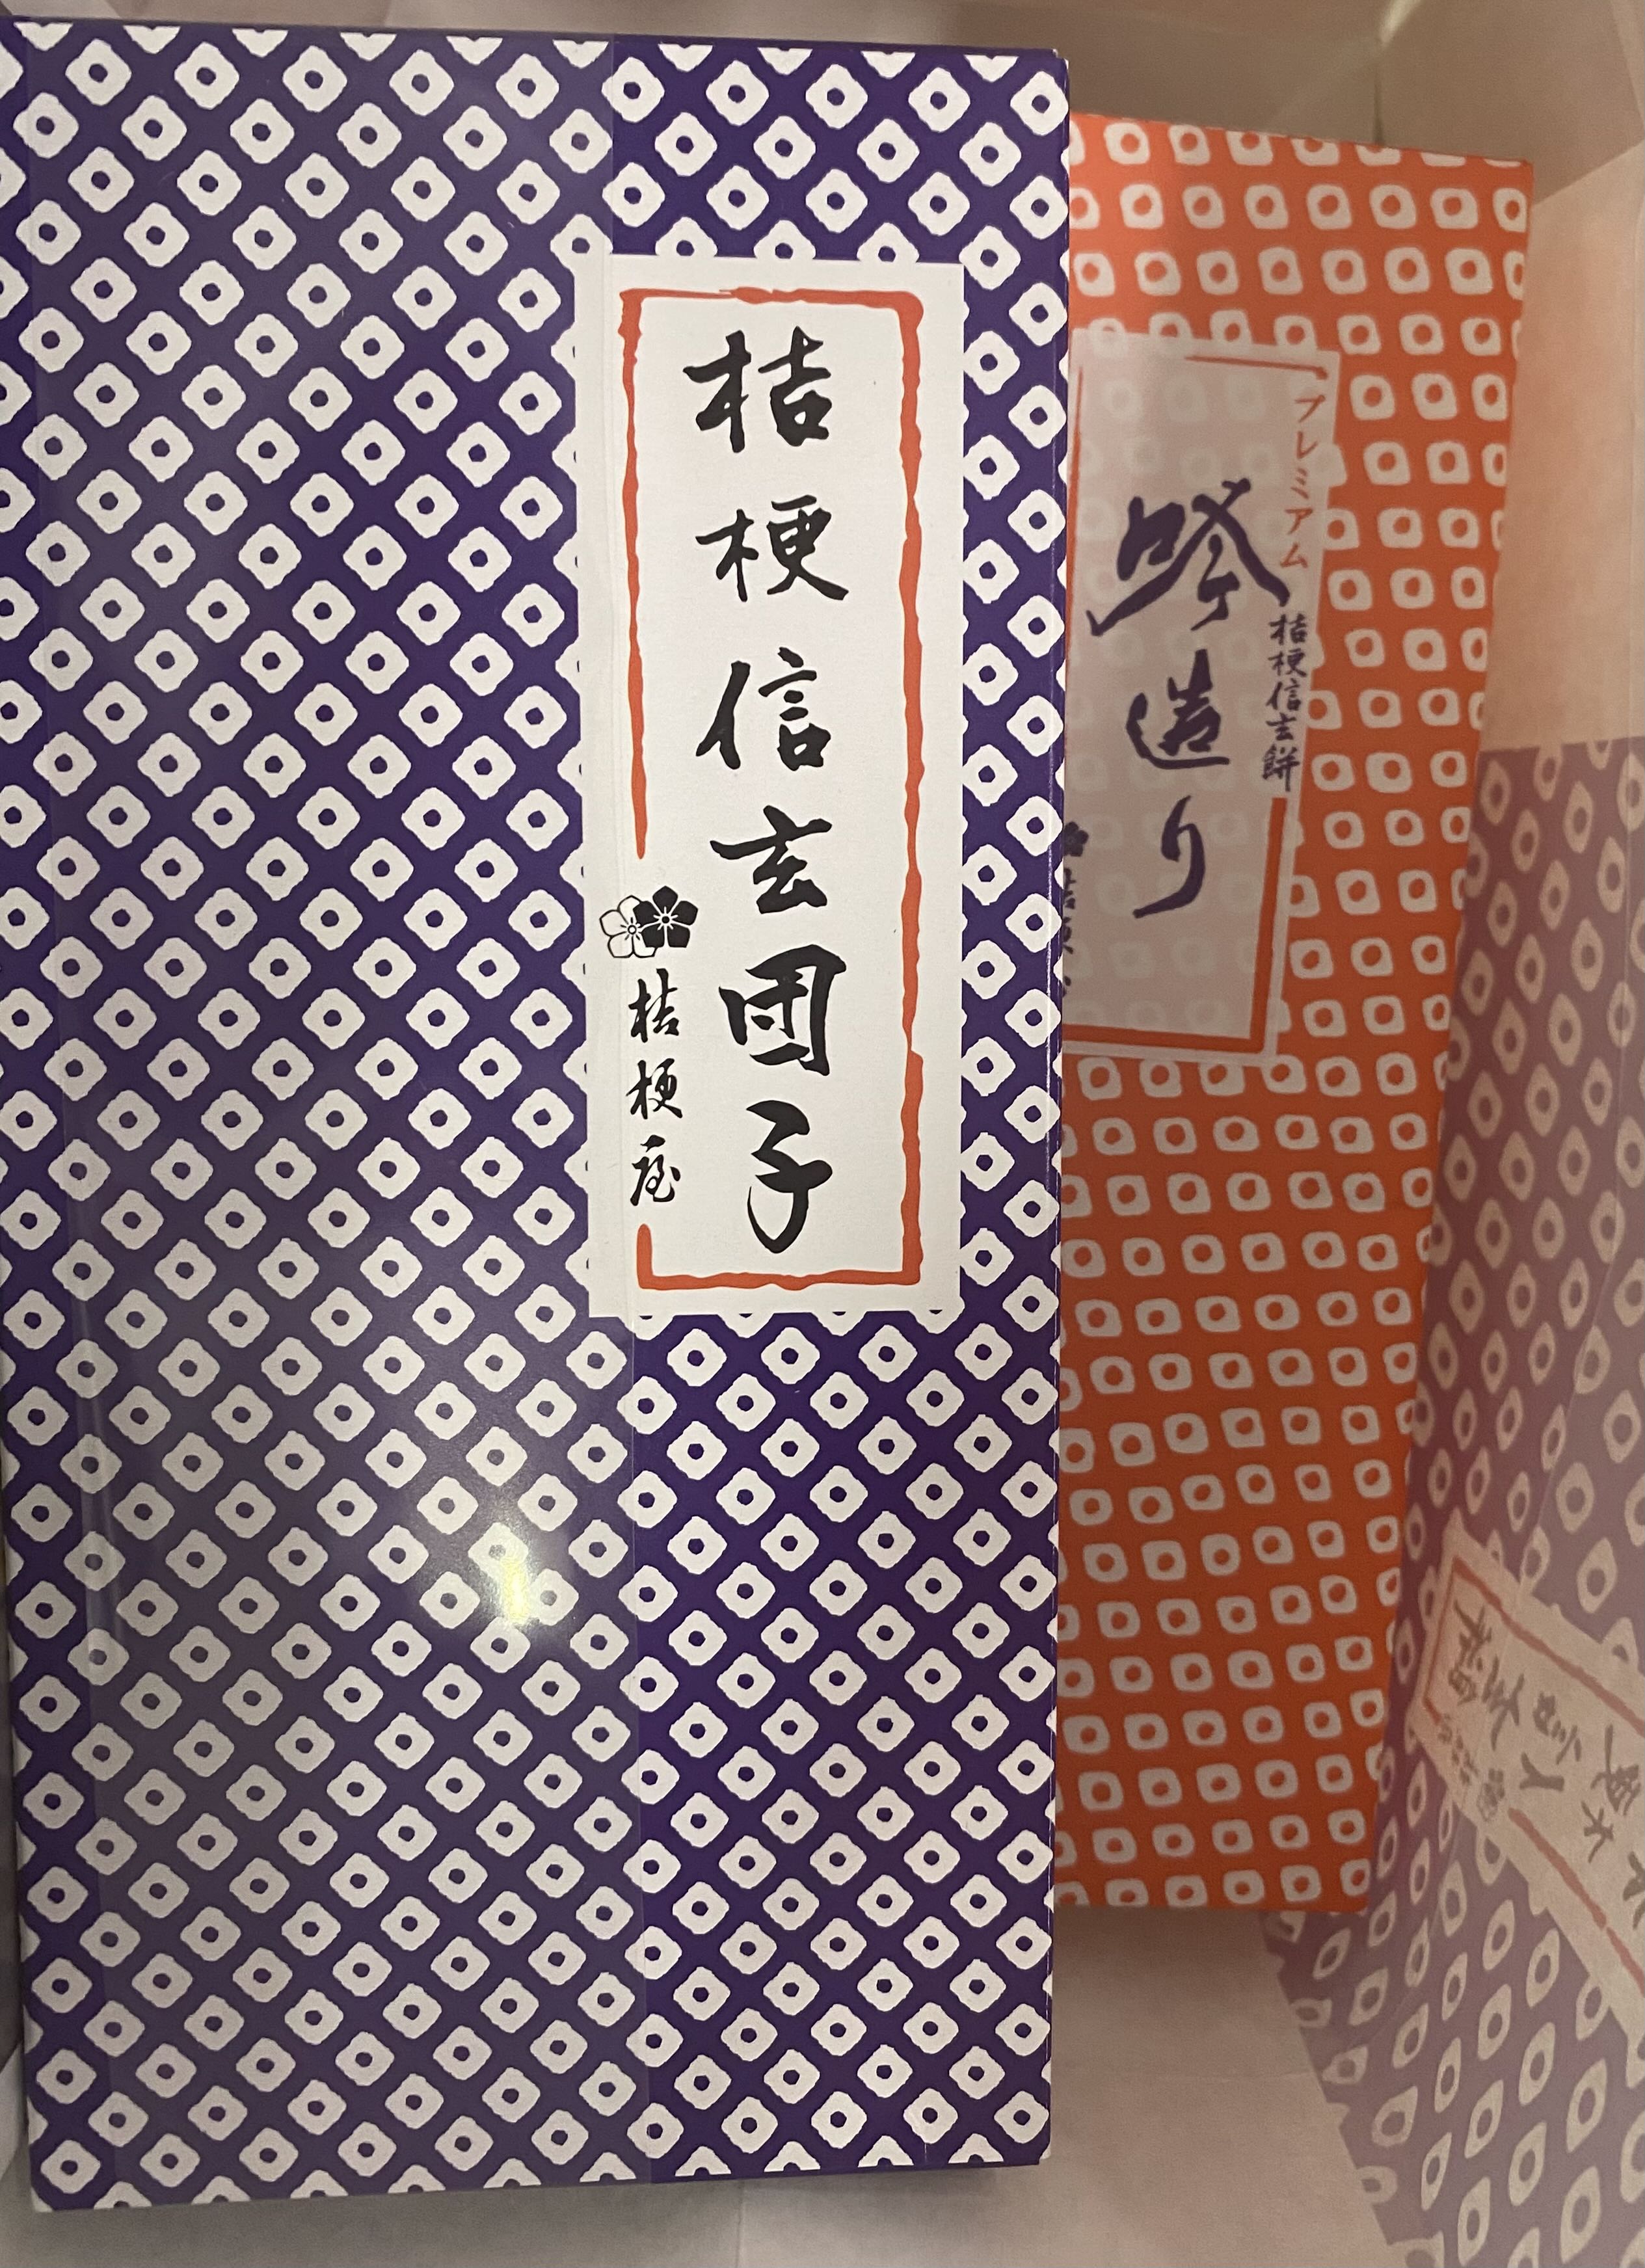 桔梗信玄団子
桔梗屋
プレミアム
吟造り
桔梗信玄餅